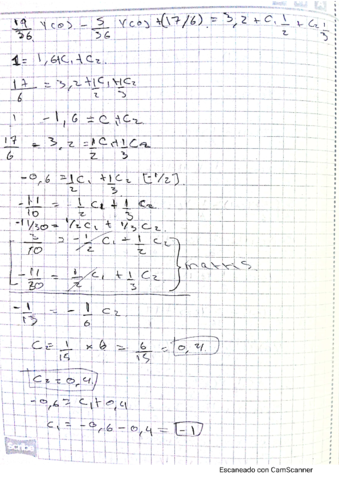 19/36 Ycos - 5/36 Ycos + (17/6) = 3,2 + C₁ 1/2 + C₂ 1/3
1 = 1,6 + C₁ + C₂
17/6 = 3,2 + 1/2 C₁ + 1/3 C₂
-1,6 = C₁ + C₂
17/6 = 3,2 = 1/2 C₁ + 1/3 C₂
-0,6 = 1/2 C₁ + 1/3 C₂ [-1/2].
-11/10 = -1/2 C₁ + 1/3 C₂
-11/30 = 1/2 C₁ + 1/3 C₂
3/10 = -1/2 C₁ + 1/2 C₂
-11/30 = 1/2 C₁ + 1/3 C₂ } matris
-1/15 = -1/6 C₂
C₂ = 1/15 × 6 = 6/15 = 0,4
C₂ = 0,4
-0,6 = C₁ + 0,4
C₁ = -0,6 - 0,4 = -1
Scribe
Escaneado con CamScanner